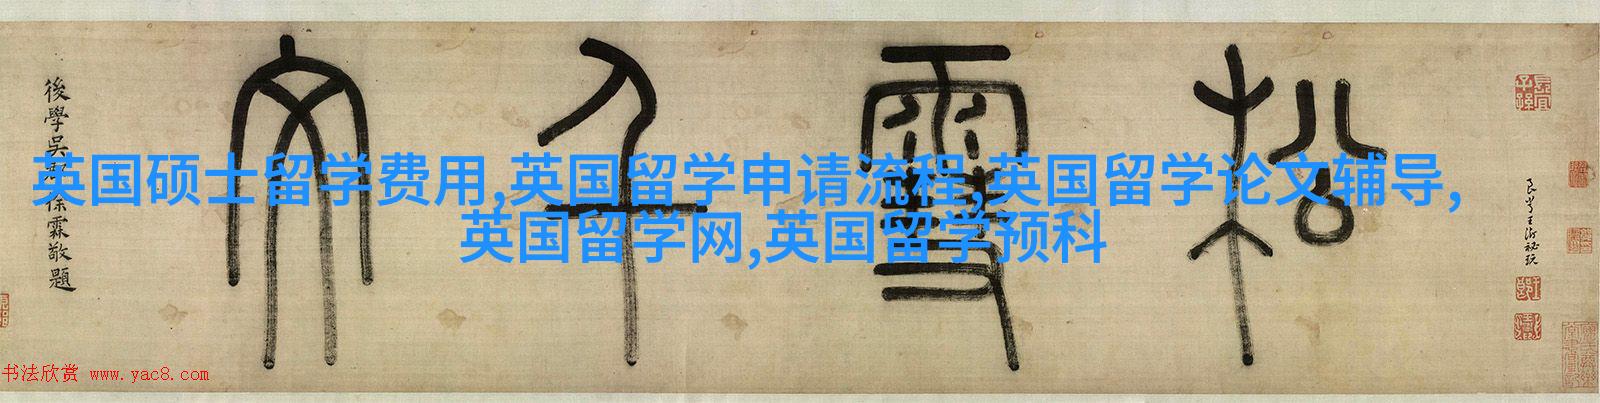 良常王澍秘玩
松雪千文
後學吳郡徐霖敬題
英国硕士留学费用,英国留学申请流程,英国留学论文辅导,
英国留学网,英国留学预科
书法欣赏 www.yac8.com